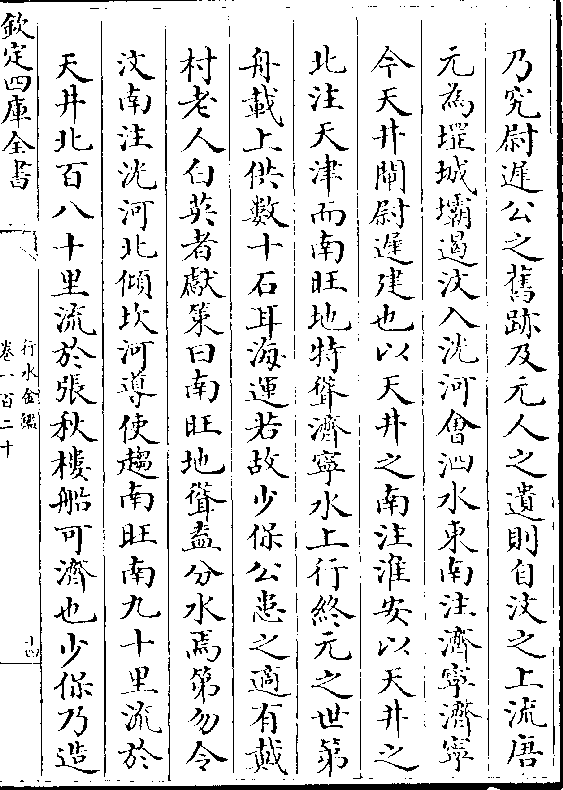 乃究尉遲公之舊跡及元人之遺則自汶之上流唐
元為堽城壩遏汶入洸河會泗水東南注濟寧濟寧
今天井閘尉遲建也以天井之南注淮安以天井之
北注天津而南旺地特聳濟寧水上行終元之世第
舟載上供數十石耳海運若故少保公患之適有戴
村老人白英者獻策曰南旺地聳盍分水焉第勿令
汶南注洸河北傾坎河導使趨南旺南九十里流於
天井北百八十里流於張秋樓船可濟也少保乃造
欽定四庫全書
行水金鑑
卷一百二十
十四